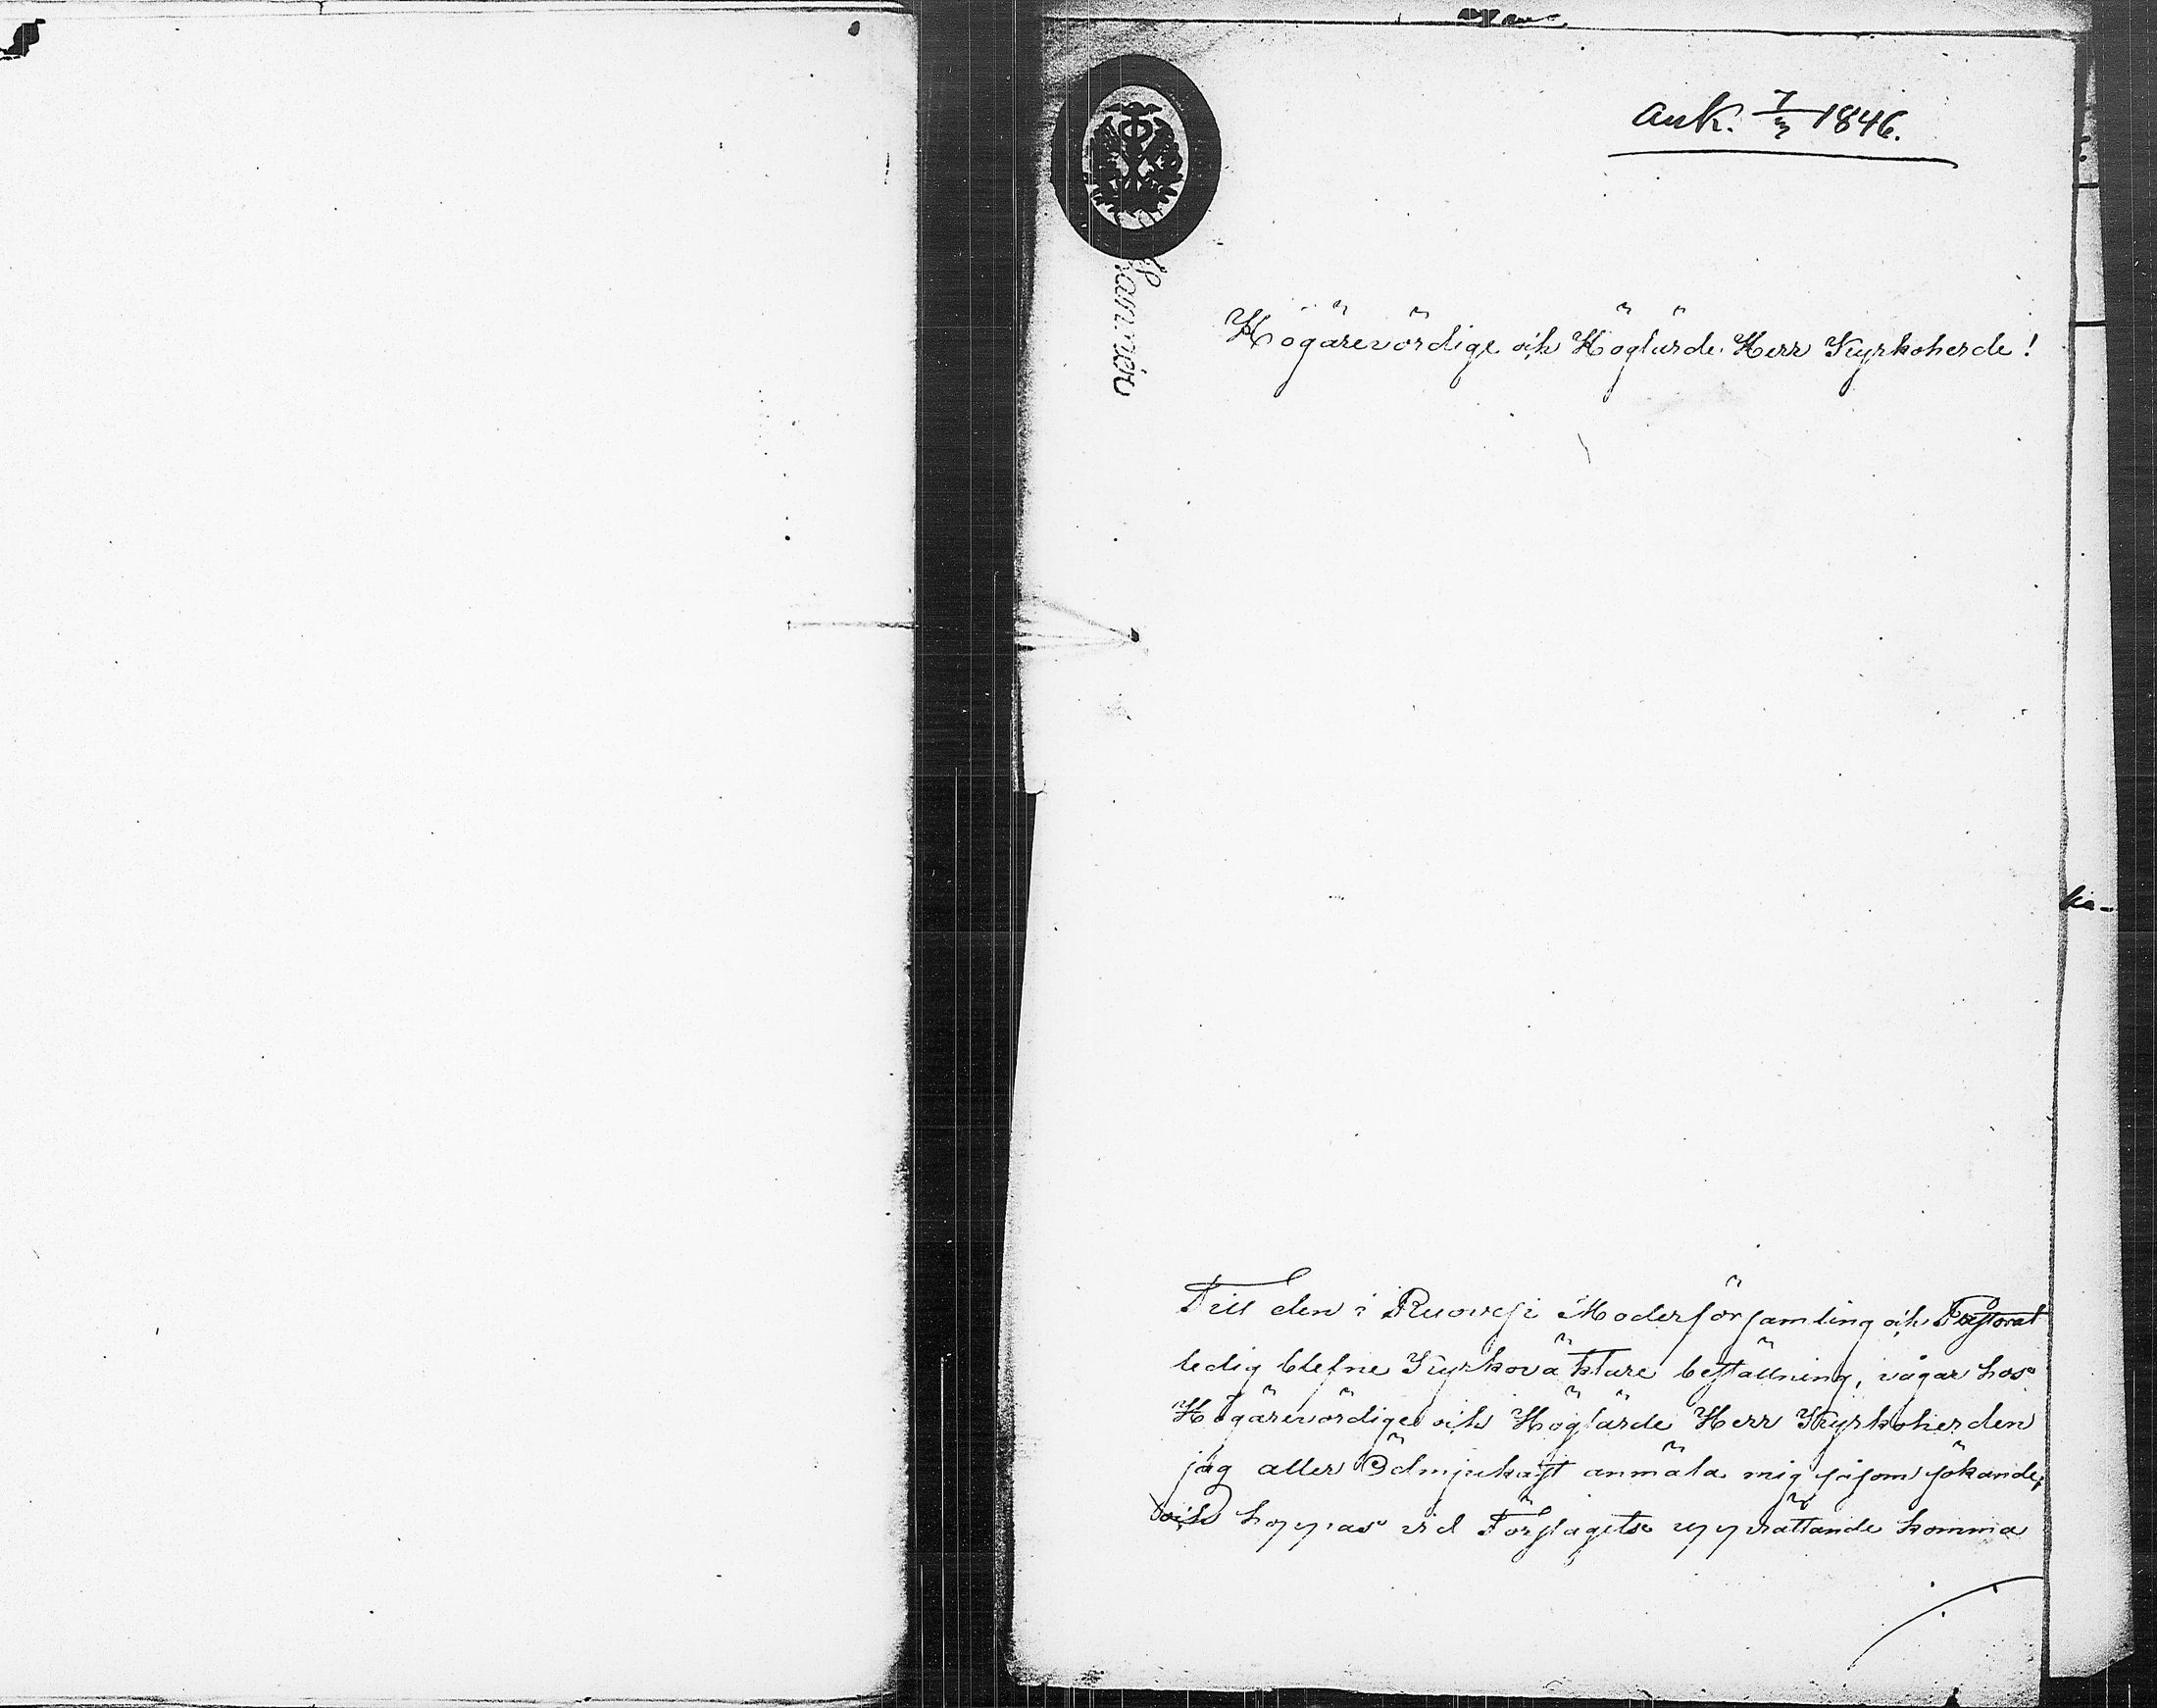 ank. 7/3 1846.
Högärevördige och Höglärde Herr Kyrkoherde!
Till den i Ruovesi Moderförsamling och Pastorat
ledig blefne Kyrkoväktare beställning, vågar hos
Högärevördige och Höglärde Herr Kyrkoherden
jag aller Ödmjukast anmäla mig såsom sökande,
och hoppas vid Förslagets upprättande komma